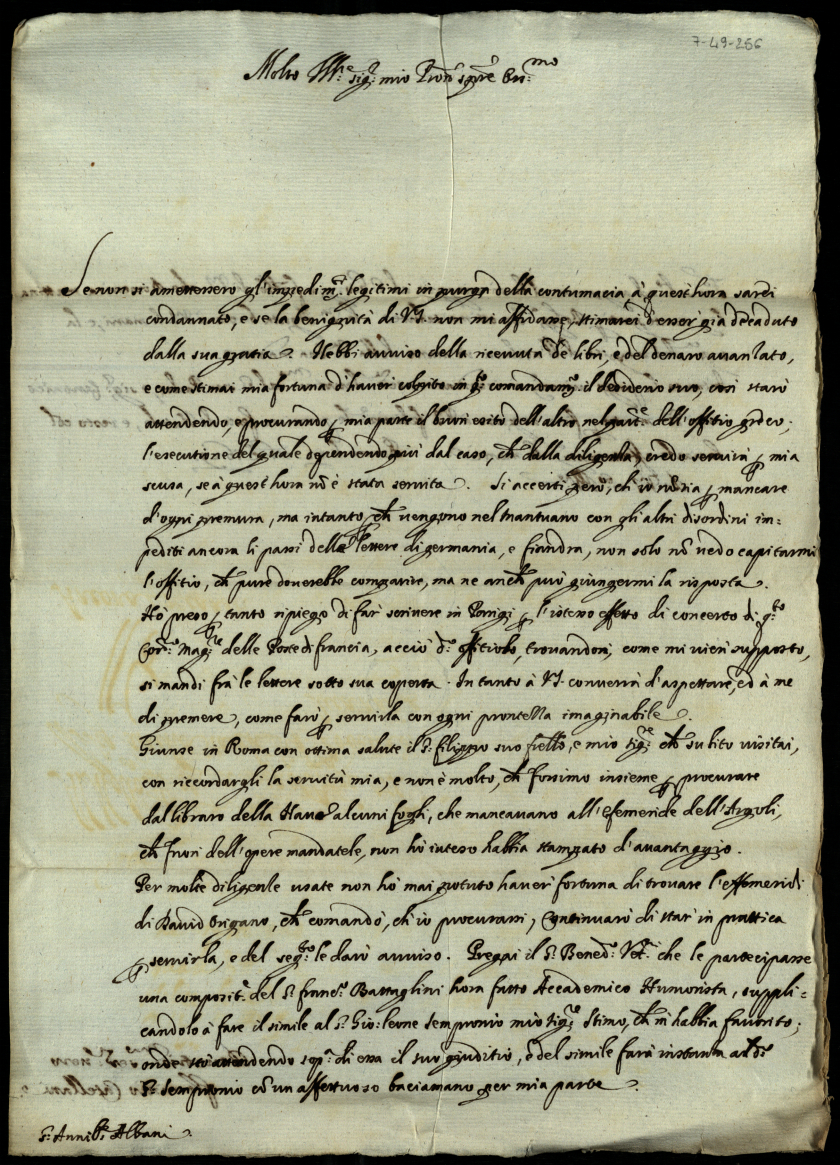 7-49-256
Molto Ill.re sig.r mio Pron sigre
Se non si amettessero gl'impedim.ti legitimi in purga della contumacia, à quest'hora sarei
condannato, e se la benignità di V.S. non mi affidasse, stimarei d'esser già decaduto
dalla sua gratia. Hebbi avviso della ricevuta de libri, e del denaro avanzato,
e come stimai mia fortuna d'haver colpito in q.to comandam.to il desiderio suo, così starò
attendendo, e procurando p mia parte il buon esito dell'altro nel part.re dell'offitio greco,
l'esecutione del quale dependendo più dal caso, ch dalla diligenza, credo servirà p mia
scusa, se à quest'hora nō è stata servita. Si accerti però, ch'io nō sia p mancare
d'ogni premura, ma intanto, ch vengono nel Mantuano con gli altri disordini im-
pediti ancora li passi delle lettere di germania, e fiandra, non solo nō vedo capitarmi
l'offitio, ch pure doverebbe comparire, ma ne anch può giungermi la risposta.
Hò preso p tanto ripiego di far scrivere in Parigi p l'istesso effetto di concerto di q.to
Cor.re Mag.re delle Poste di francia, acciò d.o offitiolo, trovandosi, come mi vien supposto,
si mandi frà le lettere sotto sua coperta. In tanto à V.S. converrà d'aspettare, ed à me
di premere, come farò p servirla con ogni prontezza imaginabile.
Giunse in Roma con ottima salute il S.r filippo suo frello, e mio sig.re ch subito visitai,
con riccordargli la servitù mia, e non è molto, ch fossimo insieme p procurare
dal libraro della Nave alcuni fogli, che mancavano all'efemeride dell'Argoli,
ch fuori dell'opere mandatele, non hò inteso habbia stampato d'avantaggio.
Per molte diligenze usate non hò mai potuto haver fortuna di trovare l'effemeridi
di David Origano, ch comandò, ch'io procurassi; Continuarò di star in prattica
p servirla, e del seg.to le darò avviso. Pregai il S.r Bened.o Vet.i che le partecipasse
una composit.e del S.r franc.o Battaglini hora fatto Accademico Humorista, suppli-
candolo à fare il simile al S.r Gio: leone sempronio mio sig.re Stimo, ch m'habbia favorito;
onde stò attendendo sop.a di essa il suo giuditio, e del simile farà instanza al d.o
S.r sempronio cō un affettuoso baciamano per mia parte.
S.r Annib.e Albani